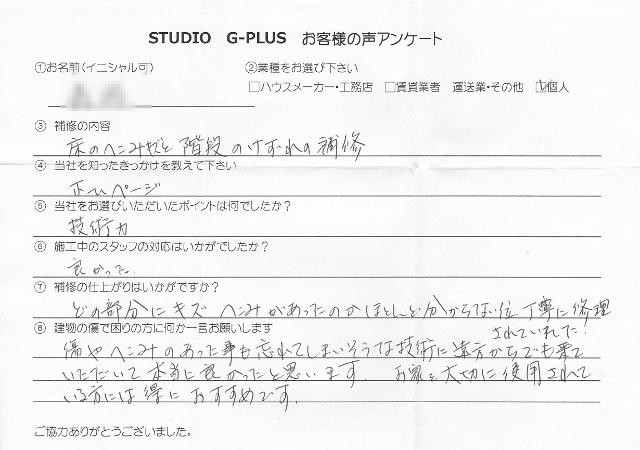 STUDIO G-PLUS お客様の声アンケート
①お名前(イニシャル可) ②業種をお選び下さい
□ハウスメーカー・工務店 □賃貸業者 運送業・その他 ☑個人
③ 補修の内容
床のへこみなどと階段のけずれの補修
④ 当社を知ったきっかけを教えて下さい
ホームページ
⑤ 当社をお選びいただいたポイントは何でしたか?
技術力
⑥ 施工中のスタッフの対応はいかがでしたか?
良かった
⑦ 補修の仕上がりはいかがですか?
どの部分にキズ へこみがあったのかほとんど分からない位 丁寧に修理
されていました!
⑧ 建物の傷で困りの方に何か一言お願いします
傷やへこみのあった事も忘れてしまいそうな技術に遠方からでも来て
いただいて本当に良かったと思います. お家を大切に使用されて
いる方には得におすすめです.
ご協力ありがとうございました。